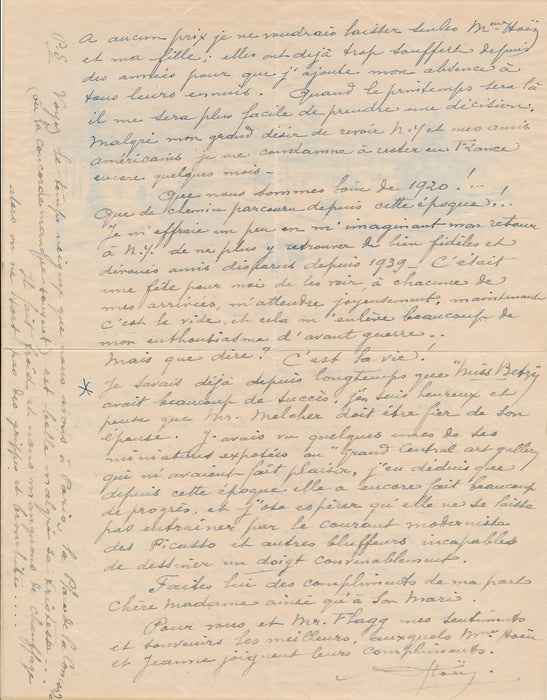 A aucun prix je ne voudrais laisser seules Mme Haëy
et ma fille; elles ont déjà trop souffert depuis
des années pour que j'ajoute mon absence à
tous leurs ennuis. Quand le printemps sera là
il me sera plus facile de prendre une décision.
Malgré mon grand désir de revoir N.Y et mes amis
américains je me condamne à rester en France
encore quelques mois -
Que nous sommes loin de 1920! ...
Que de chemin parcouru depuis cette époque...!
Je m'effraie un peu en m'imaginant mon retour
à N.Y. de ne plus y retrouver de bien fidèles et
dévoués amis disparus depuis 1939 - C'était
une fête pour moi de les voir, à chacune de
mes arrivées, m'attendre joyeusement, maintenant
c'est le vide, et cela m'enlève beaucoup de
mon enthousiasme d'avant guerre..
Mais que dire? C'est la vie!
* Je savais déjà depuis longtemps que "Miss Betsy
avait beaucoup de succès, j'en suis heureux et
pense que Mr. Melcher doit être fier de son
épouse. J'avais vu quelques unes de ses
miniatures exposées au "Grand Central art gallery
qui m'avaient fait plaisir, j'en déduis que
depuis cette époque elle a encore fait beaucoup
de progrès, et j'ose espérer qu'elle ne se laisse
pas entraîner par le courant moderniste
des Picasso et autres bluffeurs incapables
de dessiner un doigt convenablement.
Faites lui des compliments de ma part
chère Madame ainsi qu'à son Mari.
Pour vous et Mr. Flagg mes sentiments
et souvenirs les meilleurs, auxquels Mme Haëy
et Jeanne joignent leurs compliments.
P.S. Voyez le temps neigeux que nous avons à Paris, la Place de la Concorde
(où la concorde manque toujours) est belle malgré sa tristesse..
Il fait froid et nous manquons de chauffage
alors on ne voit que des grippes et bronchites....